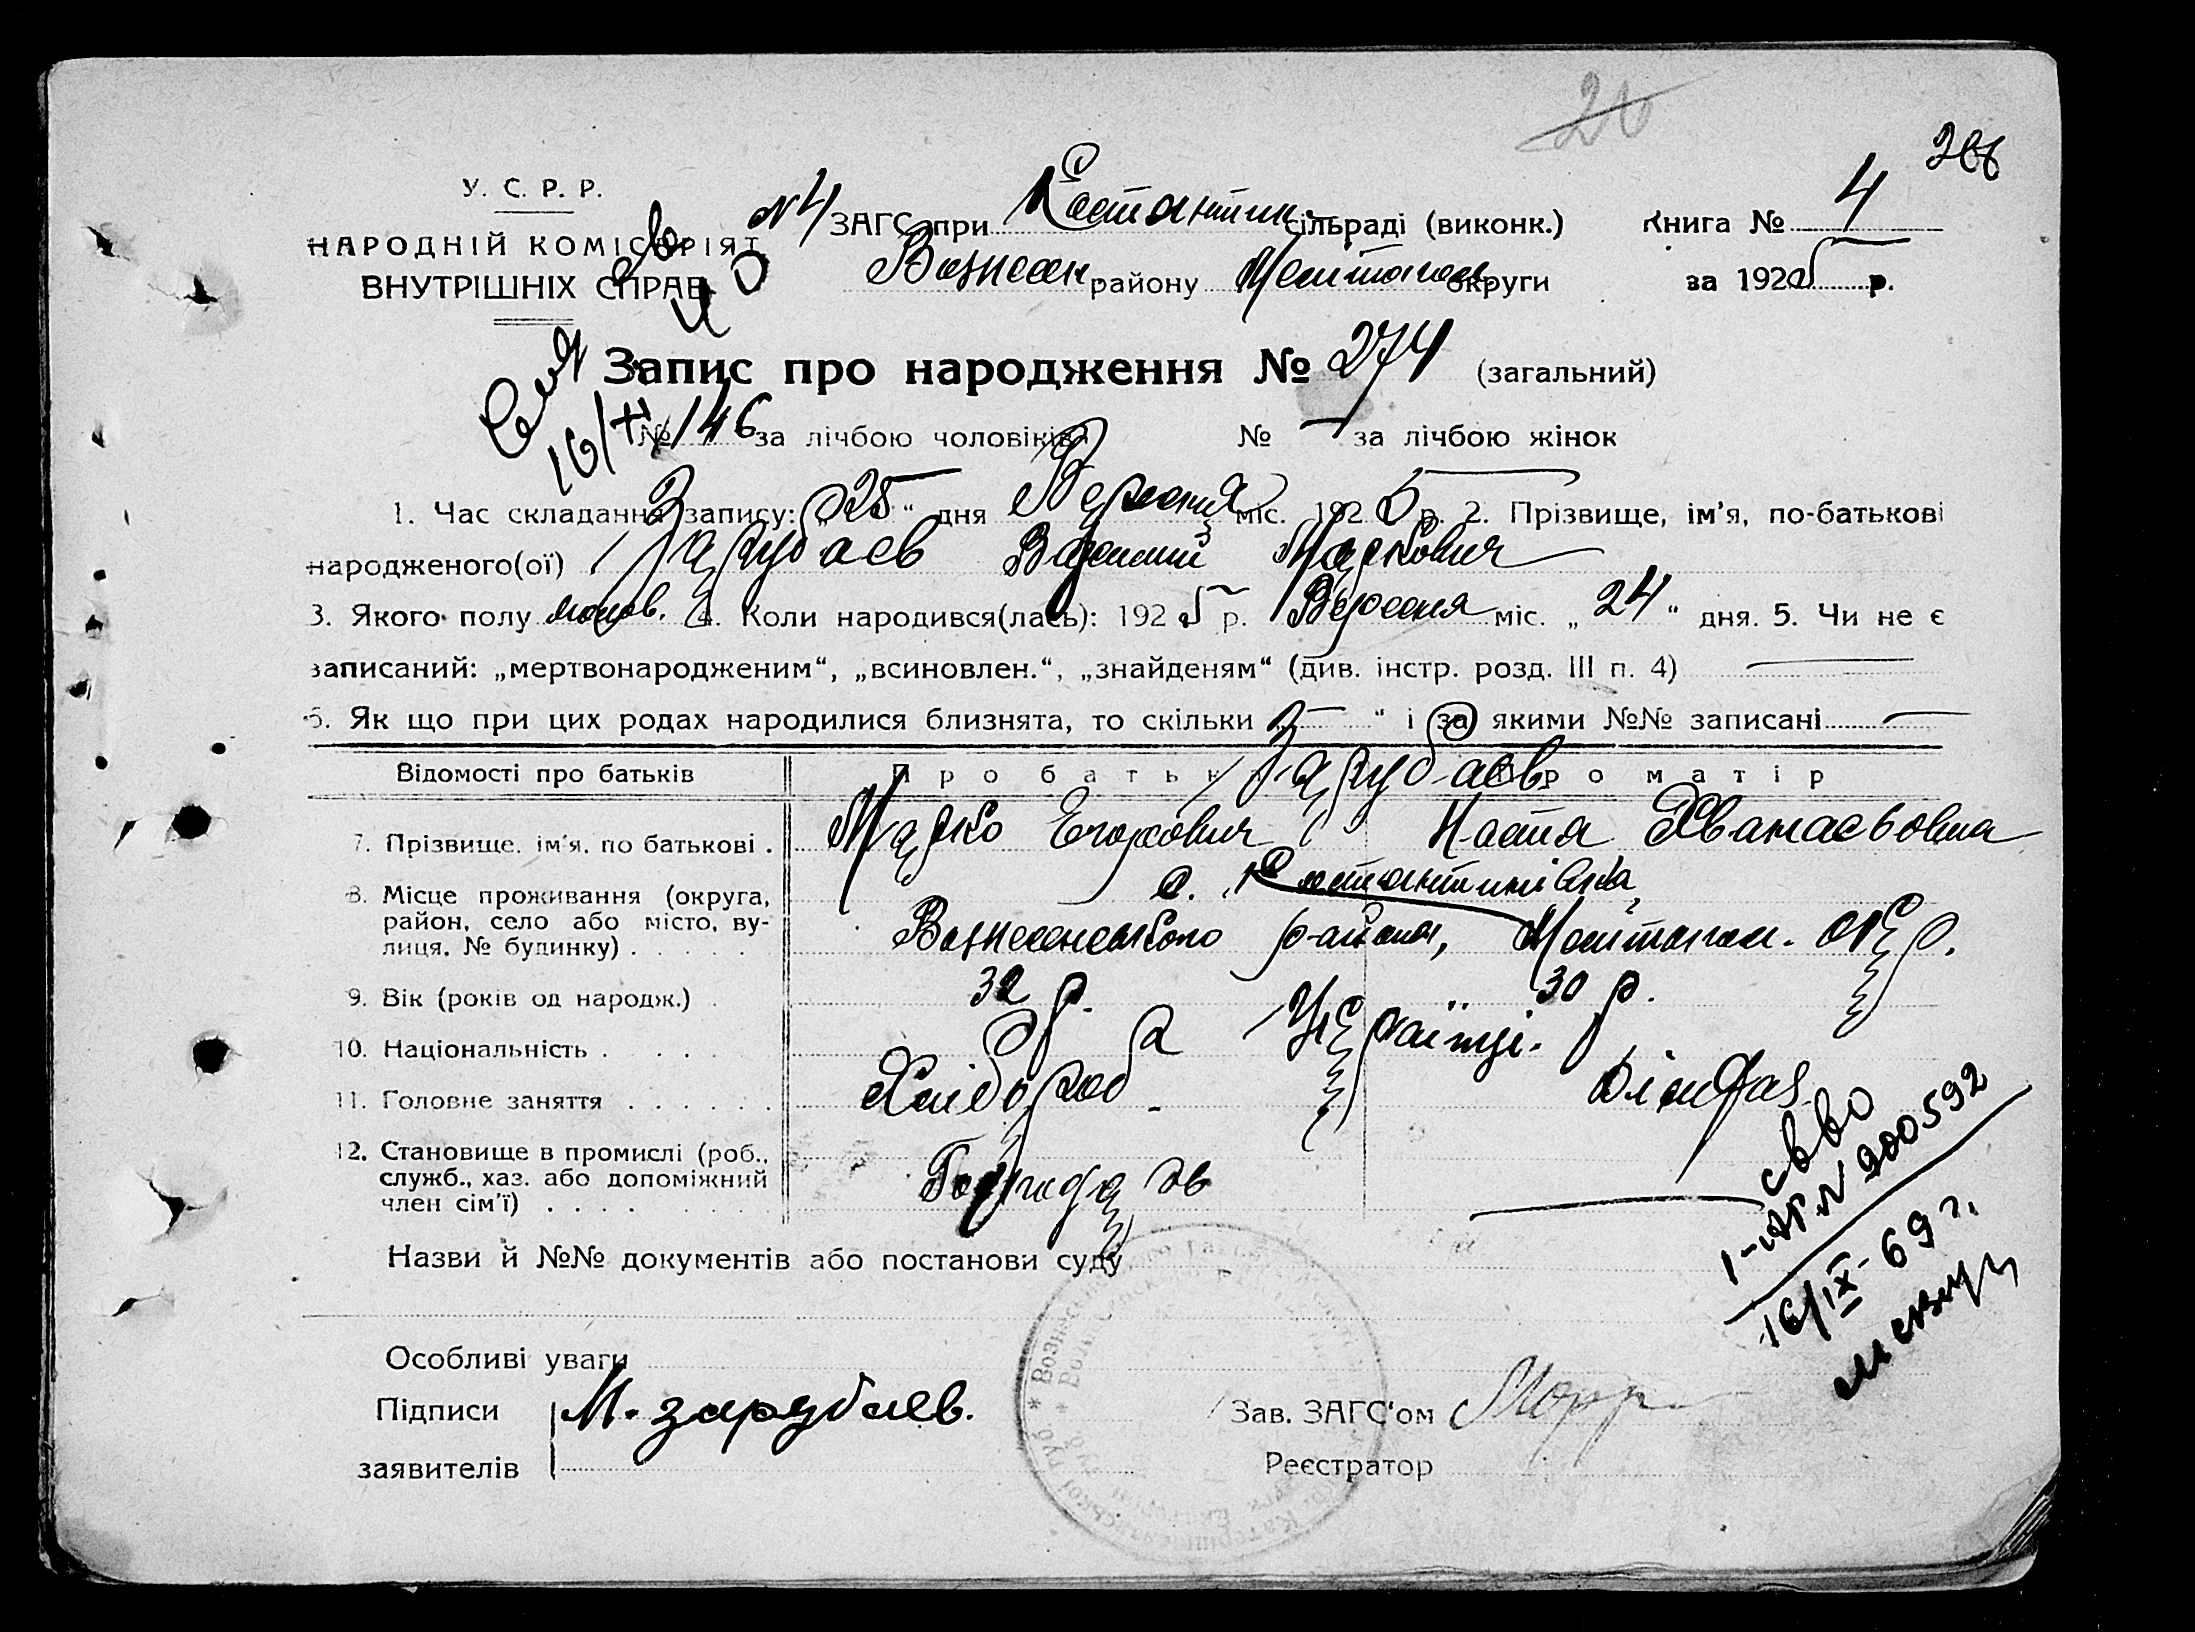 20
266
У. С. Р. Р.
НАРОДНІЙ КОМІСАРІЯТ
ВНУТРІШНІХ СПРАВ
№4 ЗАГС при Костянтин. сільраді (виконк.) Книга № 4
Вознесен. району Мелітопол. округи за 1925 р.
Запис про народження № 274 (загальний)
16/X
№ 146 за лічбою чоловіків № — за лічбою жінок
1. Час складання запису: „25“ дня Вересня міс. 1925 р. 2. Прізвище, ім'я, по-батькові
народженого(ої) Зарубаєв Василий Маркович
3. Якого полу чолов. 4. Коли народився(лась): 1925 р. Вересня міс. „24“ дня. 5. Чи не є
записаний: „мертвонародженим“, „всиновлен.“, „знайденям“ (див. інстр. розд. III п. 4) —
6. Як що при цих родах народилися близнята, то скільки — “ і за якими №№ записані —
Відомості про батьків Про батька Про матір
Зарубаєв
7. Прізвище, ім'я, по батькові . Марко Егорович Настя Афанасьовна
8. Місце проживання (округа,
район, село або місто, ву-
лиця, № будинку) . . . . .
с. Костянтинівка
Вознесенського района, Мелітопол. окр.
9. Вік (років од народж.) . 32 р. 30 р.
10. Національність . . . . Українці.
11. Головне заняття . . . . . . Хлібороб.
12. Становище в промислі (роб.,
служб., хаз. або допоміжний
член сім'ї) . . . .
Господар —
Назви й №№ документів або постанови суду
Особливі уваги
Підписи М. Зарубаев.
заявителів
Зав. ЗАГС'ом
Реєстратор
свво
900592
16/IX-69 г.